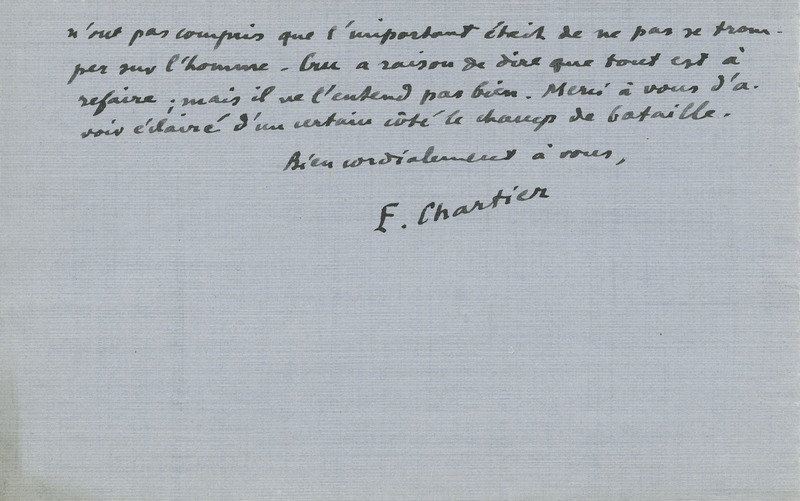 n'ont pas compris que l'important était de ne pas se trom-
per sur l'homme. Cru a raison de dire que tout est à
refaire ; mais il ne l'entend pas bien. Merci à vous d'a-
voir éclairé d'un certain côté le champ de bataille.
Bien cordialement à vous,
E. Chartier